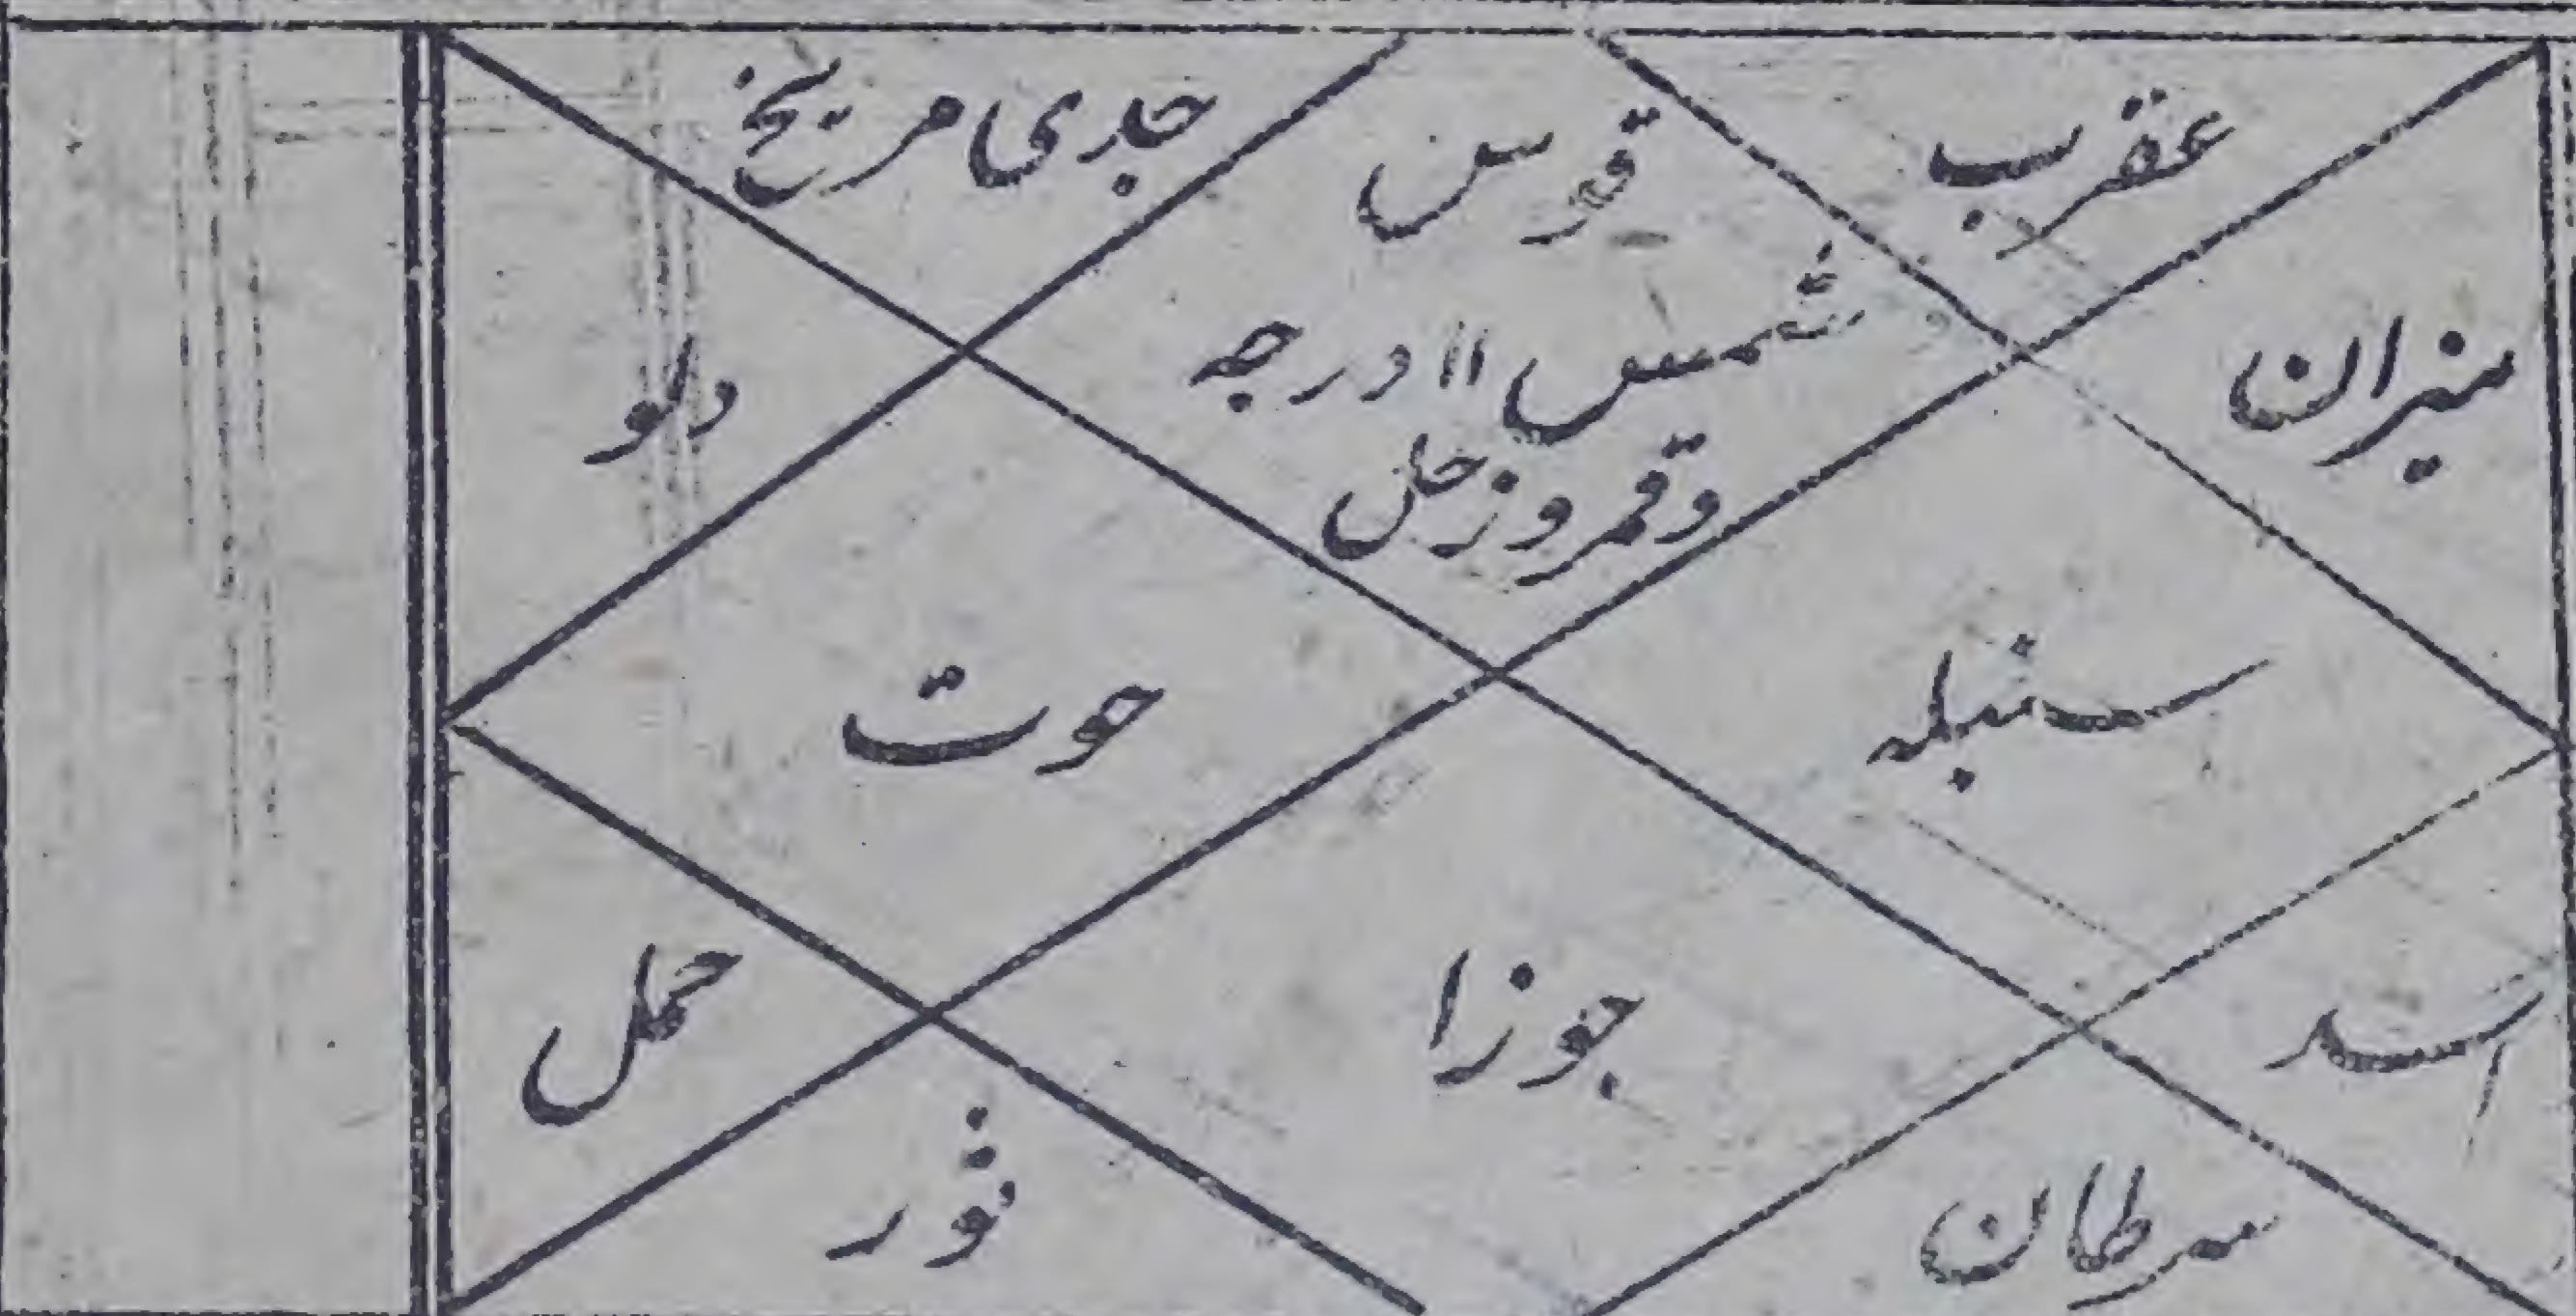 عقرب
قوس
جدی مریخ
شمس ۱۱ درجہ
وقمر وزحل
میزان
دلو
سنبلہ
حوت
اسد
جوزا
حمل
سرطان
ثور